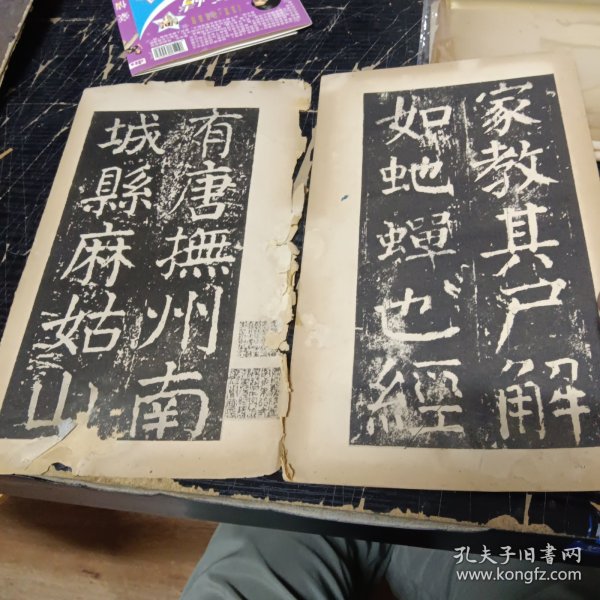 有唐撫州南
城縣麻姑山
家教其尸解
如虵蟬也經
孔夫子旧书网
www.kongfz.com